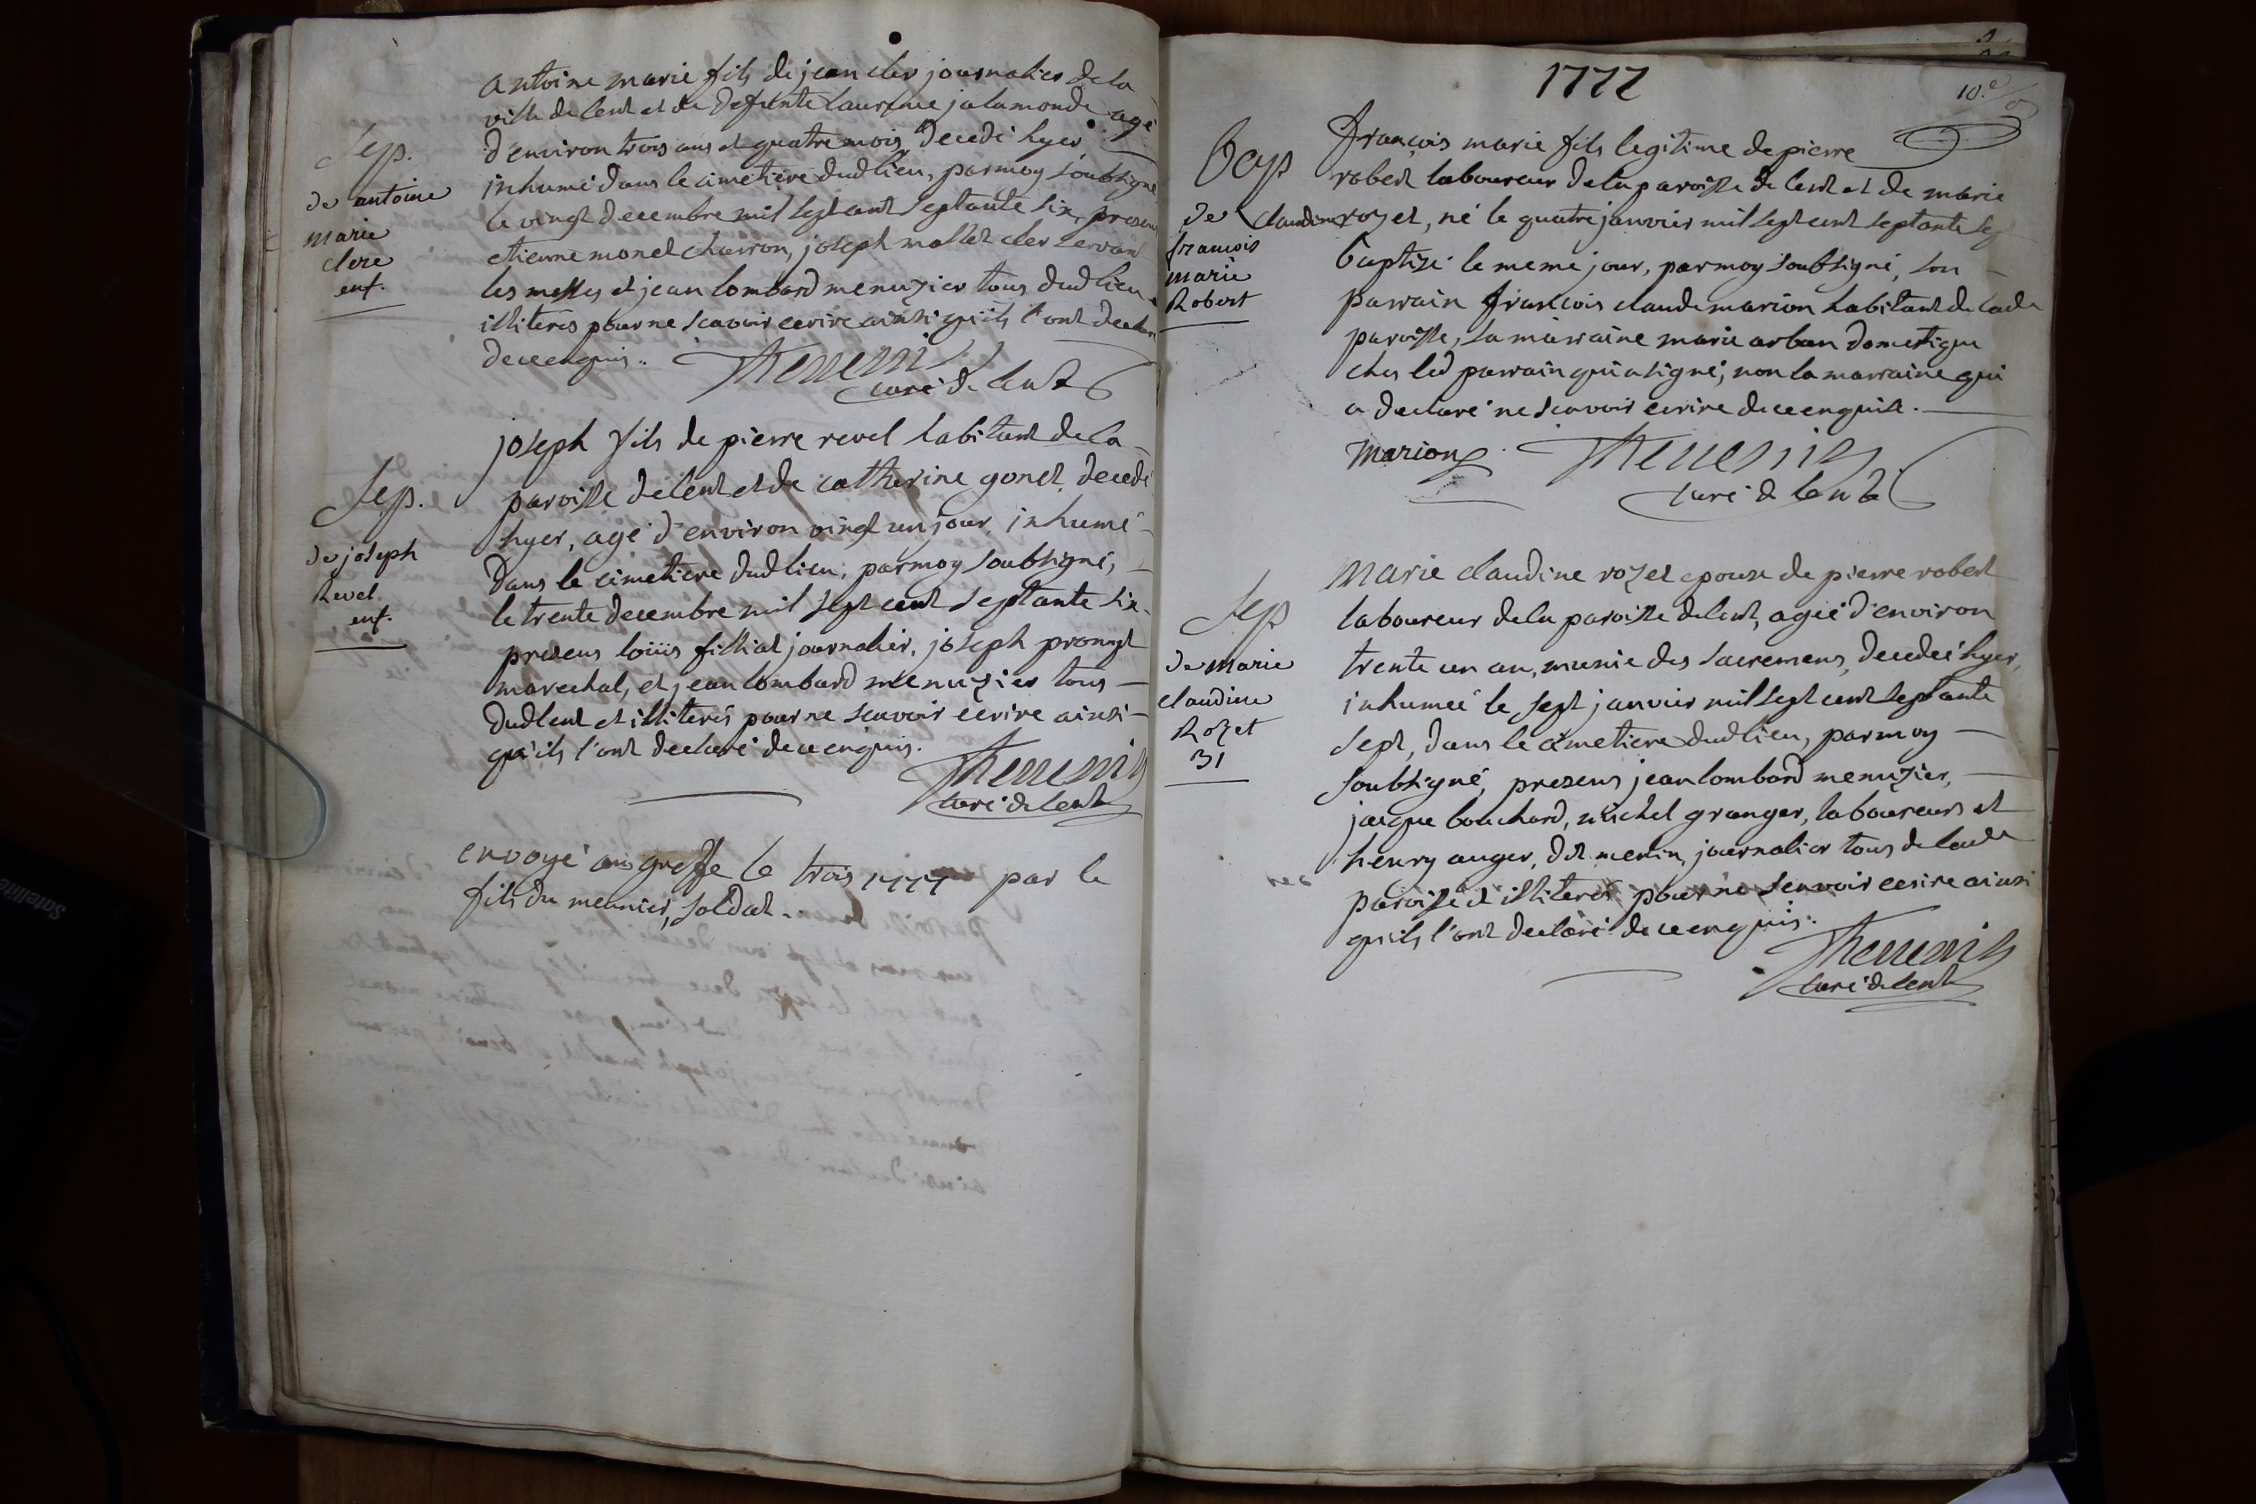 antoine marie fils de jean cler journalier de la
ville de lent et de defunte laurence jalamonde agé
d'environ trois ans et quatre mois decedé hyer
Sep.
inhumé dans le cimetiere dudlieu, parmoy soubsigné
de antoine
le vingt decembre mil sept cent septante six, presens
marie
etienne monet charron, joseph mallet cler servant
clere
enf.
les messes et jean lombard menuzier tous dudlieu
illiterés pour ne scavoir ecrire ainsi qu'ils l'ont declaré
de ce enquis.
Thevenin
curé de lent
joseph fils de pierre revel habitant de la
Sep.
paroisse de lent et de catherine gonet, decedé
hyer, agé d'environ vingt un jour, inhumé
de joseph
Revel
enf.
dans le cimetiere dudlieu, parmoy soubsigné,
le trente decembre mil sept cent septante six
presens loüis filliat journalier, joseph
marechal, et jean lombard menuzier tous
dudlent et illiterés pour ne scavoir ecrire ainsi
qu'ils l'ont declaré de ce enquis.
Thevenin
curé de lent
envoyé au greffe le trois 1777 par le
fils du meunier, soldat.
1777
10.e
françois marie fils legitime de pierre
Bap
robert laboureur de la paroisse de lent et de marie
de
claudine rozet, né le quatre janvier mil sept cent septante sept
françois
marie
Robert
baptizé le meme jour, parmoy soubsigné, son
parrain françois claude marion habitant de lade
paroisse, sa marraine marie arban domestique
ches led parrain qui a signé, non la marraine qui
a declaré ne scavoir ecrire de ce enquise.
Marion
Thevenin
curé de lent
Marie claudine rozet epouse de pierre robert
Sep
laboureur de la paroisse de lent, agée d'environ
de marie
trente un an, munie des sacremens, decedée hyer,
claudine
inhumée le sept janvier mil sept cent septante
Rozet
31
sept, dans le cimetiere dudlieu, parmoy
soubsigné, presens jean lombard menuzier,
jacque bouchard, michel granger, laboureurs et
henry auger, dit menin, journalier tous de lade
paroisse et illiterés pour ne scavoir ecrire ainsi
qu'ils l'ont declaré de ce enquis.
Thevenin
curé de lent